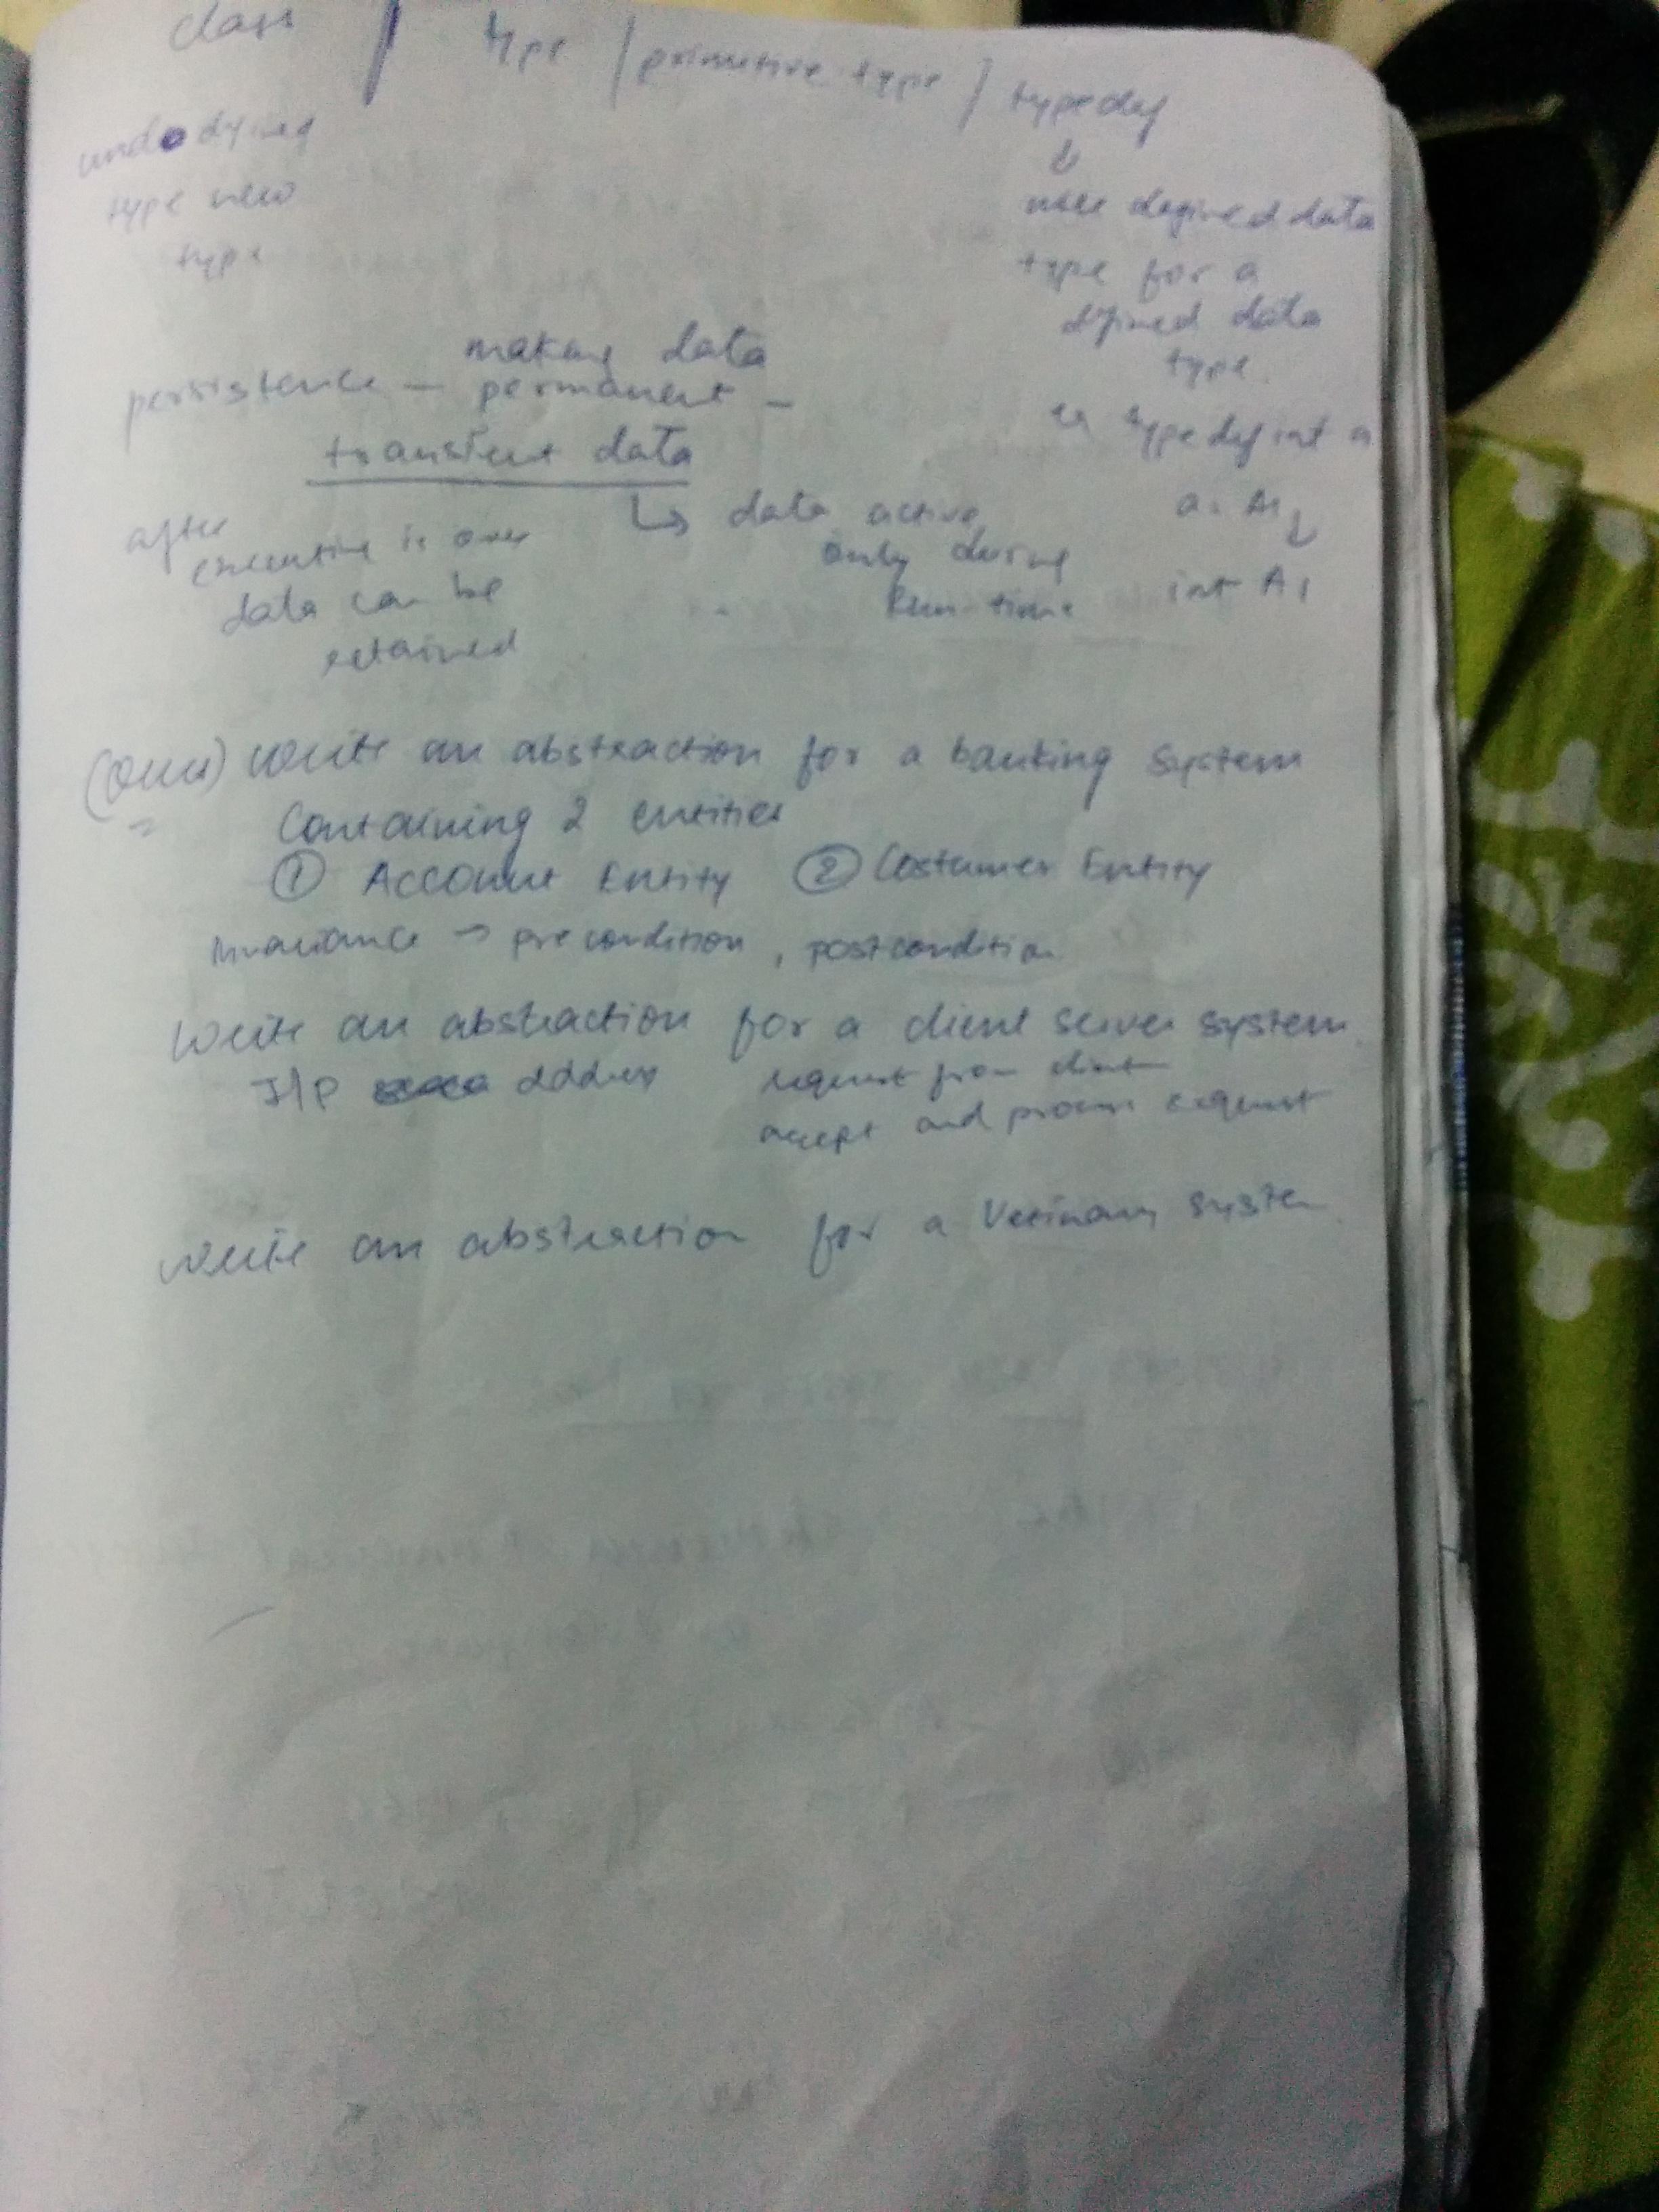 class / type / primitive type / typedef
↓
undefined
type new
type
user defined data
type for a
defined data
type
typedef int a
a. A1
↓
int A1
making data
persistence - permanent -
transient data
↳ data active
only during
Run-time
after
execution is over
data can be
retained
(Ques) Write an abstraction for a banking system
Containing 2 entities
① Account Entity ② Costumer Entity
Invariance → precondition, postcondition
Write an abstraction for a client server system.
I/P address request from client
accept and process request
write an abstraction for a Vetinary system.